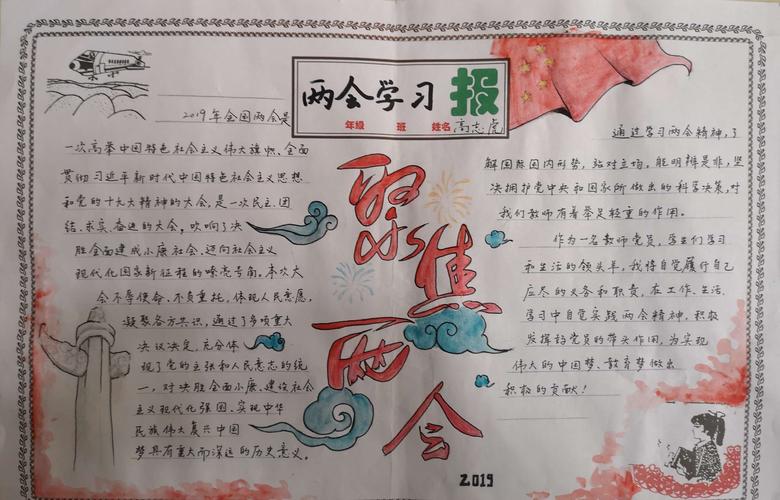 两会学习报
年级 班 姓名 高志虎
2019年全国两会是
一次高举中国特色社会主义伟大旗帜、全面
贯彻习近平新时代中国特色社会主义思想
和党的十九大精神的大会，是一次民主、团
结、求实、奋进的大会，吹响了决
胜全面建成小康社会、迈向社会主义
现代化国家新征程的嘹亮号角。本次大
会不辱使命，不负重托，体现人民意愿，
凝聚各方共识，通过了多项重大
决议决定，充分体
现了党的主张和人民意志的统
一，对决胜全面小康、建设社会
主义现代化强国、实现中华
民族伟大复兴中国
梦具有重大而深远的历史意义。
聚焦
两会
通过学习两会精神，了
解国际国内形势，站对立场，能明辨是非，坚
决拥护党中央和国家所做出的科学决策，对
我们教师有着举足轻重的作用。
作为一名教师党员，学生们学习
和生活的领头羊，我将自觉履行自己
应尽的义务和职责，在工作、生活、
学习中自觉实践两会精神，积极
发挥的党员的带头作用，为实现
伟大的中国梦、教育梦做出
积极的贡献！
2019